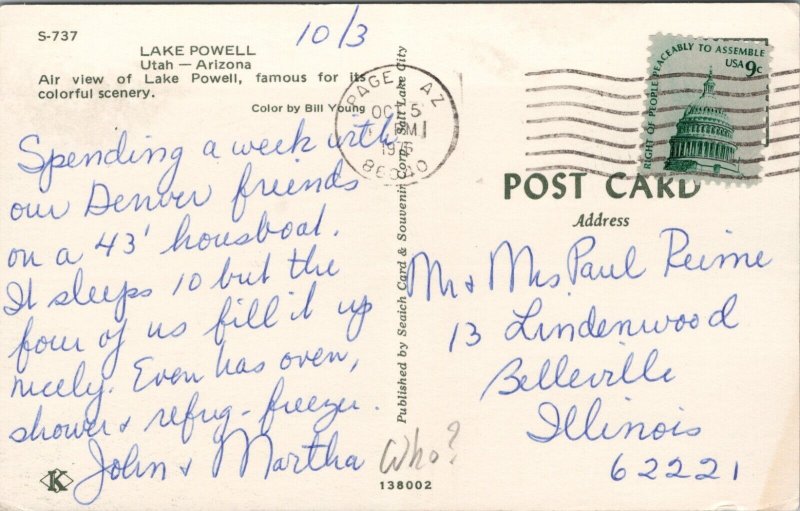 S-737
10/3
LAKE POWELL
Utah — Arizona
Air view of Lake Powell, famous for its
colorful scenery.
Color by Bill Young
Spending a week with
our Denver friends
on a 43' housboat.
It sleeps 10 but the
four of us fill it up
nicely. Even has oven,
shower & refrig-freezer.
John & Martha
Who?
K
138002
Published by Seaich Card & Souvenir Corp. Salt Lake City
PAGE AZ
OCT 5
PM
1976
86040
RIGHT OF PEOPLE PEACEABLY TO ASSEMBLE
USA 9c
POST CARD
Address
Mr & Mrs Paul Reime
13 Lindenwood
Belleville
Illinois
62221